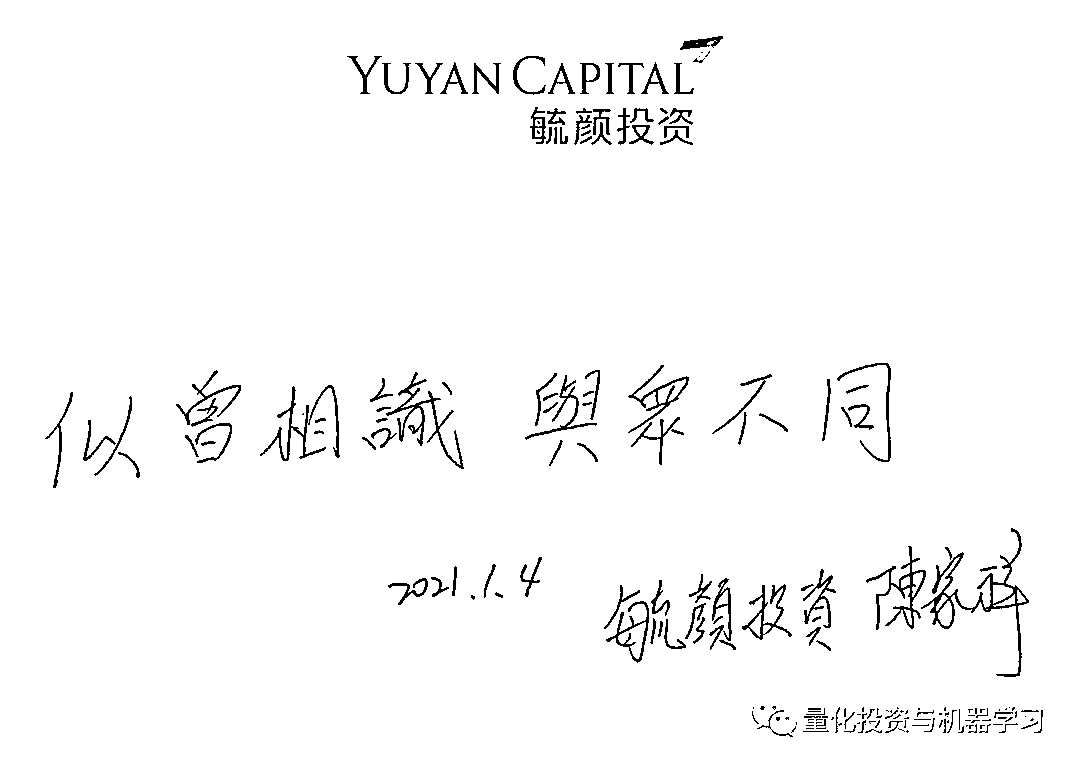 YUYAN CAPITAL
毓颜投资
似曾相識 與眾不同
2021.1.4
毓顏投資 陳家祥
量化投资与机器学习